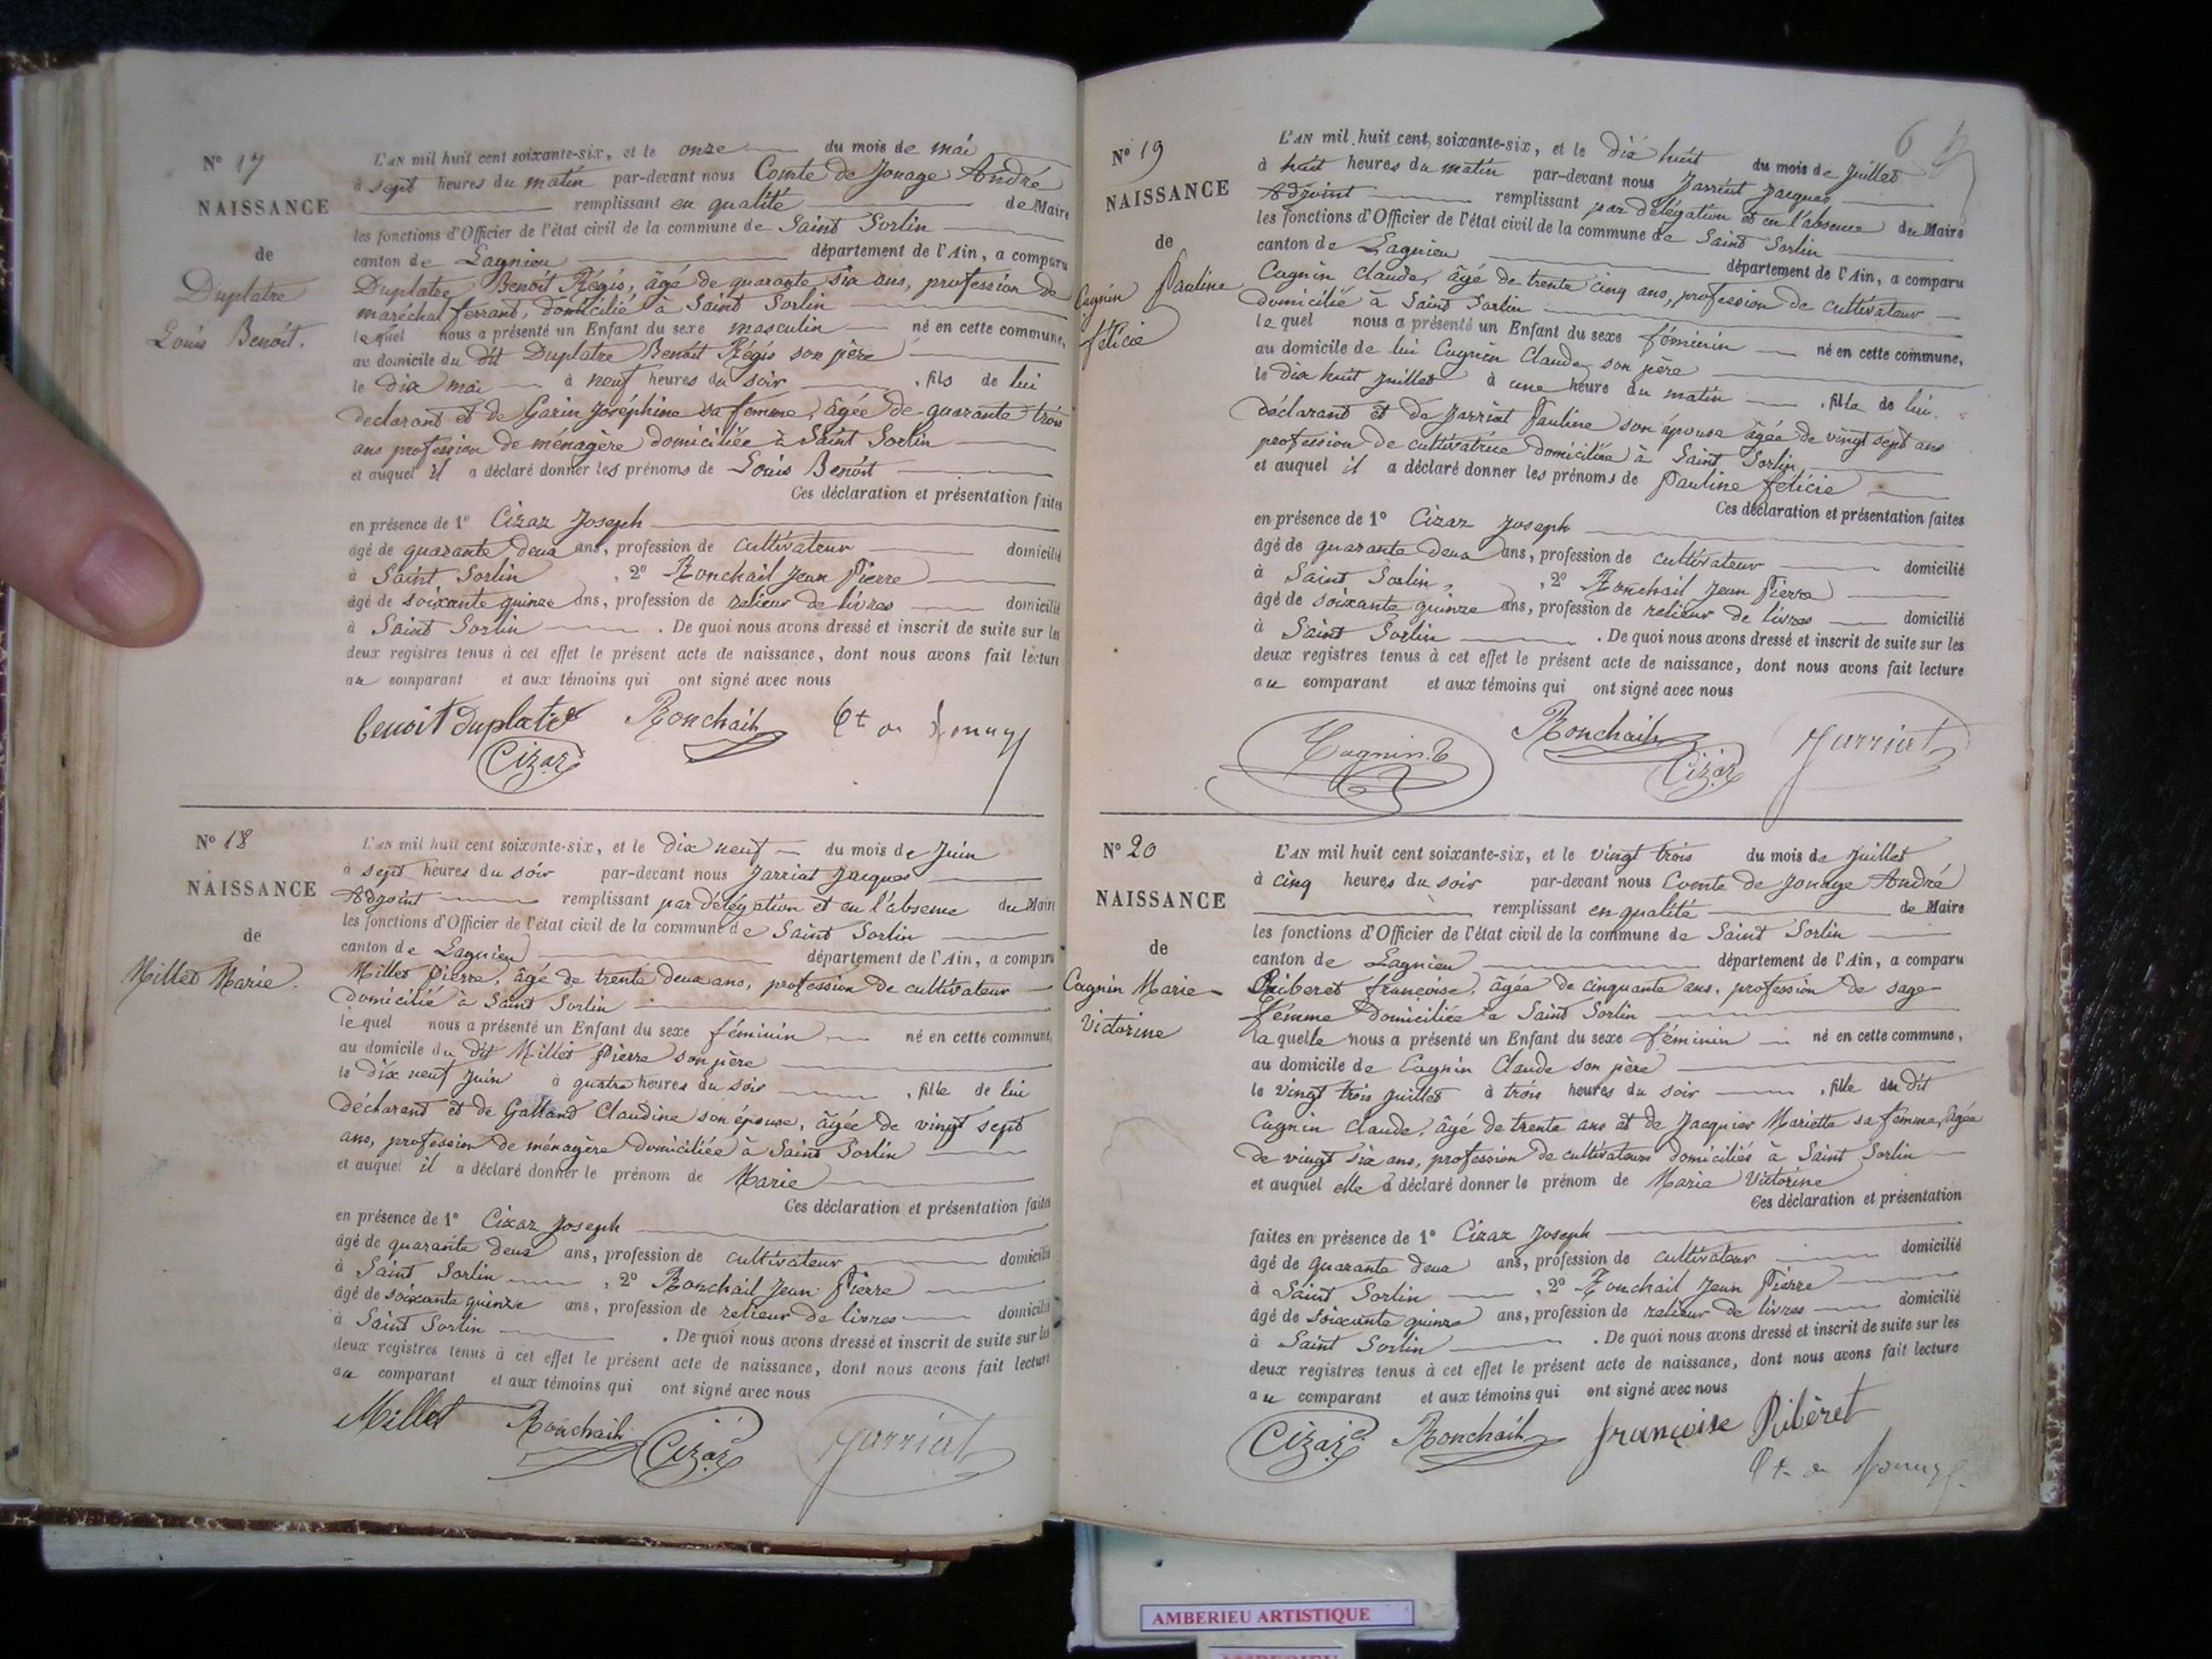 N° 17
NAISSANCE
de
Duplatre
Louis Benoit.
L'AN mil huit cent soixante-six, et le onze du mois de mai
à sept heures du matin par-devant nous Comte de Jonage André
remplissant en qualité de Maire
les fonctions d'Officier de l'état civil de la commune de Saint Sorlin
canton de Lagnieu département de l'Ain, a comparu
Duplatre Benoit Régis, âgé de quarante six ans, profession de
maréchal ferrant, domicilié à Saint Sorlin
lequel nous a présenté un Enfant du sexe masculin né en cette commune,
au domicile du dit Duplatre Benoit Régis son père
le dix mai à neuf heures du soir, fils de lui
déclarant et de Garin Joséphine sa femme, âgée de quarante trois
ans profession de ménagère domiciliée à Saint Sorlin
et auquel il a déclaré donner les prénoms de Louis Benoit
Ces déclaration et présentation faites
en présence de 1° Cizar Joseph
âgé de quarante deux ans, profession de cultivateur domicilié
à Saint Sorlin, 2° Ronchail Jean Pierre
âgé de soixante quinze ans, profession de relieur de livres domicilié
à Saint Sorlin. De quoi nous avons dressé et inscrit de suite sur les
deux registres tenus à cet effet le présent acte de naissance, dont nous avons fait lecture
au comparant et aux témoins qui ont signé avec nous
benoit duplatre Ronchail Ct de Jonage
Cizar
N° 18
NAISSANCE
de
Millet Marie.
L'AN mil huit cent soixante-six, et le dix neuf du mois de Juin
à sept heures du soir par-devant nous Jarriat Jacques
Adjoint remplissant par délégation et en l'absence du Maire
les fonctions d'Officier de l'état civil de la commune de Saint Sorlin
canton de Lagnieu département de l'Ain, a comparu
Millet Pierre, âgé de trente deux ans, profession de cultivateur
domicilié à Saint Sorlin
lequel nous a présenté un Enfant du sexe féminin né en cette commune,
au domicile du dit Millet Pierre son père
le dix neuf Juin à quatre heures du soir, fille de lui
déclarant et de Galland Claudine son épouse, âgée de vingt sept
ans, profession de ménagère domiciliée à Saint Sorlin
et auquel il a déclaré donner le prénom de Marie
Ces déclaration et présentation faites
en présence de 1° Cizar Joseph
âgé de quarante deux ans, profession de cultivateur domicilié
à Saint Sorlin, 2° Ronchail Jean Pierre
âgé de soixante quinze ans, profession de relieur de livres domicilié
à Saint Sorlin. De quoi nous avons dressé et inscrit de suite sur les
deux registres tenus à cet effet le présent acte de naissance, dont nous avons fait lecture
au comparant et aux témoins qui ont signé avec nous
Millet Ronchail Cizar Jarriat
6
N° 19
NAISSANCE
de
Cagnin Pauline
félicie
L'AN mil huit cent soixante-six, et le dix huit du mois de Juillet
à huit heures du matin par-devant nous Jarriat Jacques
Adjoint remplissant par délégation et en l'absence du Maire
les fonctions d'Officier de l'état civil de la commune de Saint Sorlin
canton de Lagnieu département de l'Ain, a comparu
Cagnin Claude, âgé de trente cinq ans, profession de cultivateur
domicilié à Saint Sorlin
lequel nous a présenté un Enfant du sexe féminin né en cette commune,
au domicile de lui Cagnin Claude son père
le dix huit Juillet à une heure du matin, fille de lui
déclarant et de Jarriat Pauline son épouse âgée de vingt sept ans
profession de cultivatrice domiciliée à Saint Sorlin
et auquel il a déclaré donner les prénoms de Pauline félicie
Ces déclaration et présentation faites
en présence de 1° Cizar Joseph
âgé de quarante deux ans, profession de cultivateur domicilié
à Saint Sorlin, 2° Ronchail Jean Pierre
âgé de soixante quinze ans, profession de relieur de livres domicilié
à Saint Sorlin. De quoi nous avons dressé et inscrit de suite sur les
deux registres tenus à cet effet le présent acte de naissance, dont nous avons fait lecture
au comparant et aux témoins qui ont signé avec nous
Cagnin C Ronchail Cizar Jarriat
N° 20
NAISSANCE
de
Cagnin Marie
Victorine
L'AN mil huit cent soixante-six, et le vingt trois du mois de Juillet
à cinq heures du soir par-devant nous Comte de Jonage André
remplissant en qualité de Maire
les fonctions d'Officier de l'état civil de la commune de Saint Sorlin
canton de Lagnieu département de l'Ain, a comparu
Riberet françoise, âgée de cinquante ans, profession de sage
femme domiciliée à Saint Sorlin
laquelle nous a présenté un Enfant du sexe féminin né en cette commune,
au domicile de Cagnin Claude son père
le vingt trois Juillet à trois heures du soir, fille du dit
Cagnin Claude, âgé de trente ans et de Jacquier Mariette sa femme, âgée
de vingt six ans, profession de cultivateurs domiciliés à Saint Sorlin
et auquel elle a déclaré donner le prénom de Marie Victorine
Ces déclaration et présentation
faites en présence de 1° Cizar Joseph
âgé de quarante deux ans, profession de cultivateur domicilié
à Saint Sorlin, 2° Ronchail Jean Pierre
âgé de soixante quinze ans, profession de relieur de livres domicilié
à Saint Sorlin. De quoi nous avons dressé et inscrit de suite sur les
deux registres tenus à cet effet le présent acte de naissance, dont nous avons fait lecture
au comparant et aux témoins qui ont signé avec nous
Cizar Ronchail françoise Ribèret
Ct de Jonage
AMBERIEU ARTISTIQUE
AMBERIEU